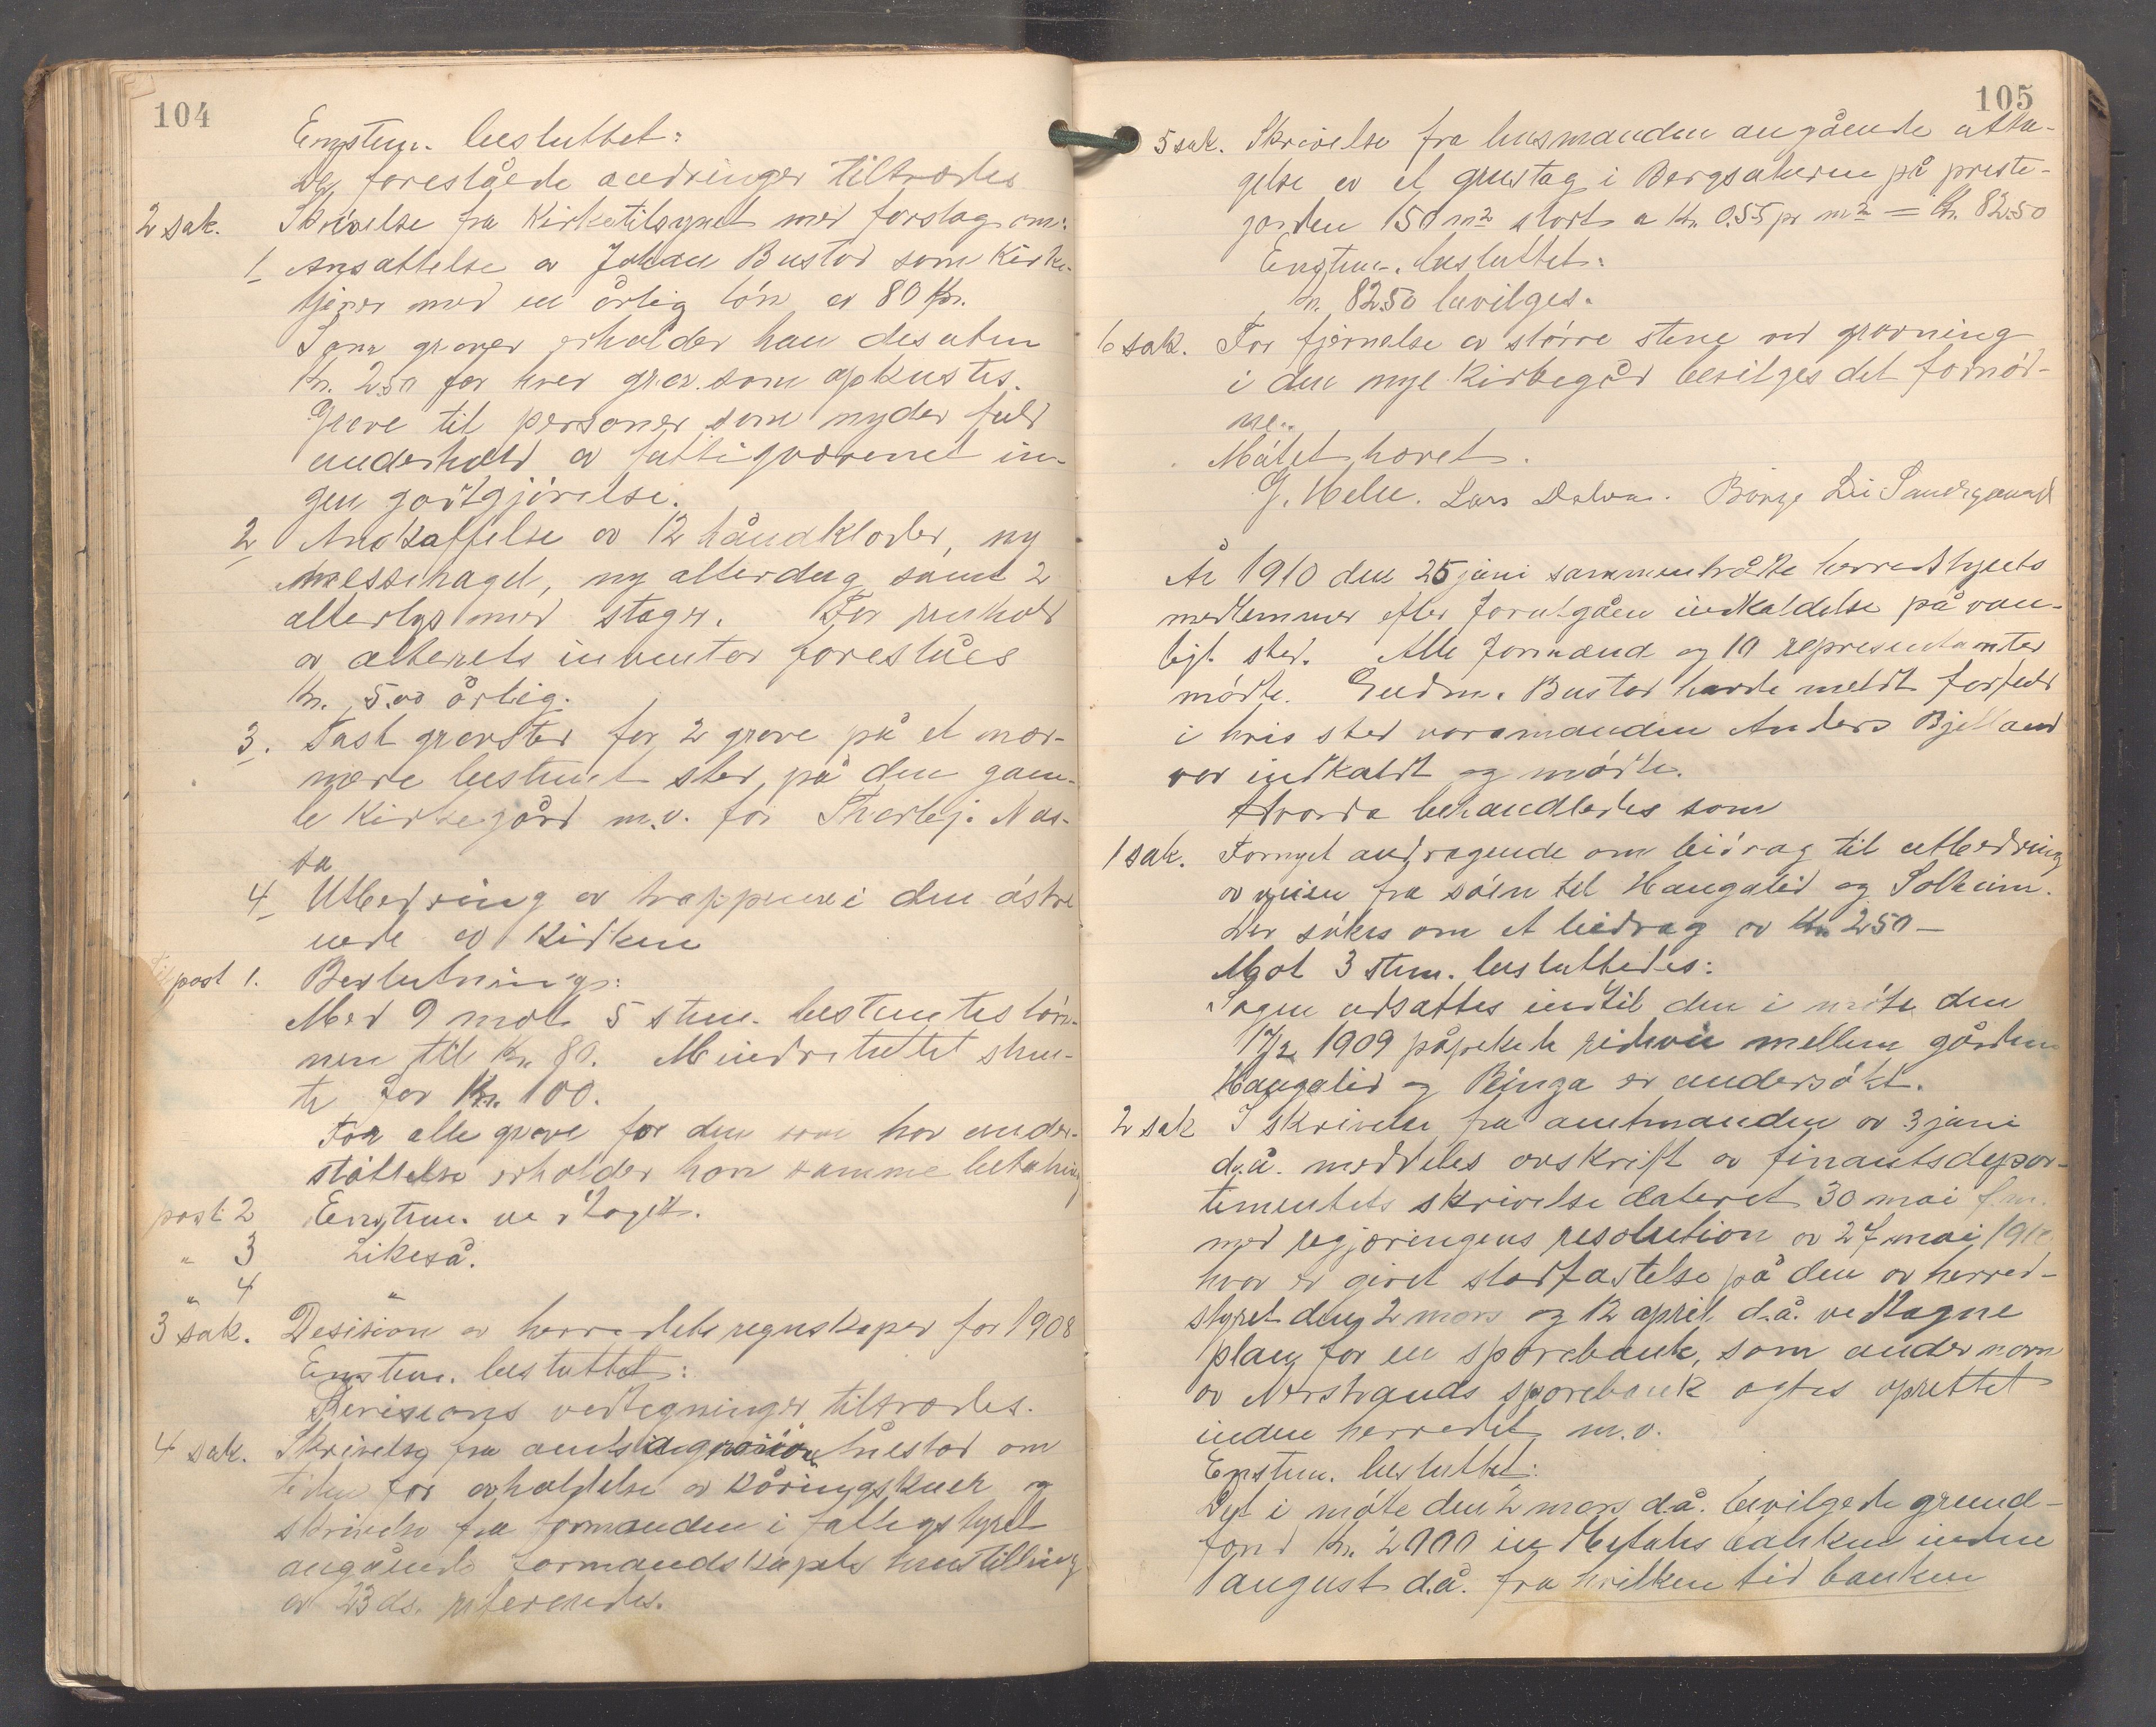 104
Enstem. besluttet:
De foreslåede ændringer tiltrædes
2 sak. Skrivelse fra Kirketilsynet med forslag om:
1 Ansættelse av Johan Bustad som Kirke-
tjener med en årlig løn av 80 Kr.
Som graver erholder han desuten
Kr. 2.50 for hver grav som opkastes.
Grave til personer som nyder fuld
underhold av fattigvæsenet in-
gen godtgjørelse.
2 Anskaffelse av 12 håndklæder, ny
messehagel, ny alterdug samt 2
alterlys med stager. For renhold
av alterets inventar foreslåes
Kr. 5.00 årlig.
3. Fast gravsted for 2 grave på et nær-
mere bestemt sted på den gam-
le Kirkegård m.v. for Thorbj. Nes-
sa
4 Utbedring av trappene i den østre
ende av Kirken
Til post 1. Beslutning:
Med 9 mot 5 stem. bestemtes løn-
nen til Kr. 80. Mindretallet stem-
te for Kr. 100.
For alle grave for dem som har under-
støttelse erholder han samme betaling
post 2 Enstem. vedtaget.
" 3 Likeså.
" 4 "
3 sak. Desision av herredets regnskaper for 1908
Enstem. besluttet:
Revisions vedtegninger tiltrædes.
4 sak. Skrivelse fra amtsagronom om
tiden for avholdelse av Kåringskuer og
skrivelse fra formanden i fattigstyret
angående formandskapets henstilling
av 23 ds. refereredes.
105
5 sak. Skrivelse fra lensmanden angående utta-
gelse av et grustag i Bergsakeren på preste-
jorden 150 m2 stort a Kr. 0.55 pr m2 = Kr. 82.50
Enstem. besluttet:
Kr. 82.50 bevilges.
6 sak. For fjernelse av større stene ved gravning
i den nye Kirkegård bevilges det fornød-
ne.
Møtet hævet.
G. Helle. Lars Dalva. Børge Lie Sandsgaard
År 1910 den 25 juni sammentrådte herredstyrets
medlemmer efter forutgåen indkaldelse på van-
ligt sted. Alle formænd og 10 repræsentanter
mødte. Gudm. Bustad havde meldt forfald
i hvis sted varamanden Anders Bjelland
var indkaldt og mødte.
Hvorda behandledes som
1 sak. Fornyet andragende om bidrag til utbedring
av veien fra søen til Haugalid og Solheim.
Der søkes om et bidrag av Kr. 250 —
Mot 3 stem. besluttedes:
Sagen udsattes indtil den i møte den
17/2 1909 påpekede rideveie mellem gården
Haugalid og Ringa er undersøkt.
2 sak I skrivelse fra amtmanden av 3 juni
d.å. meddeles avskrift av finantsdepar-
tementets skrivelse dateret 30 mai f.m.
med regjeringens resolution av 27 mai 1910
hvor er givet stadfæstelse på den av herred-
styret den 2 mars og 12 april d.å. vedtagne
plan for en sparebank, som under navn
av Nerstrands sparebank agtes oprettet
inden herredet m.v.
Enstem. besluttet:
Det i møte den 2 mars d.å. bevilgede grund-
fond Kr. 2000 indbetales banken inden
1 august d.å. fra hvilken tid banken